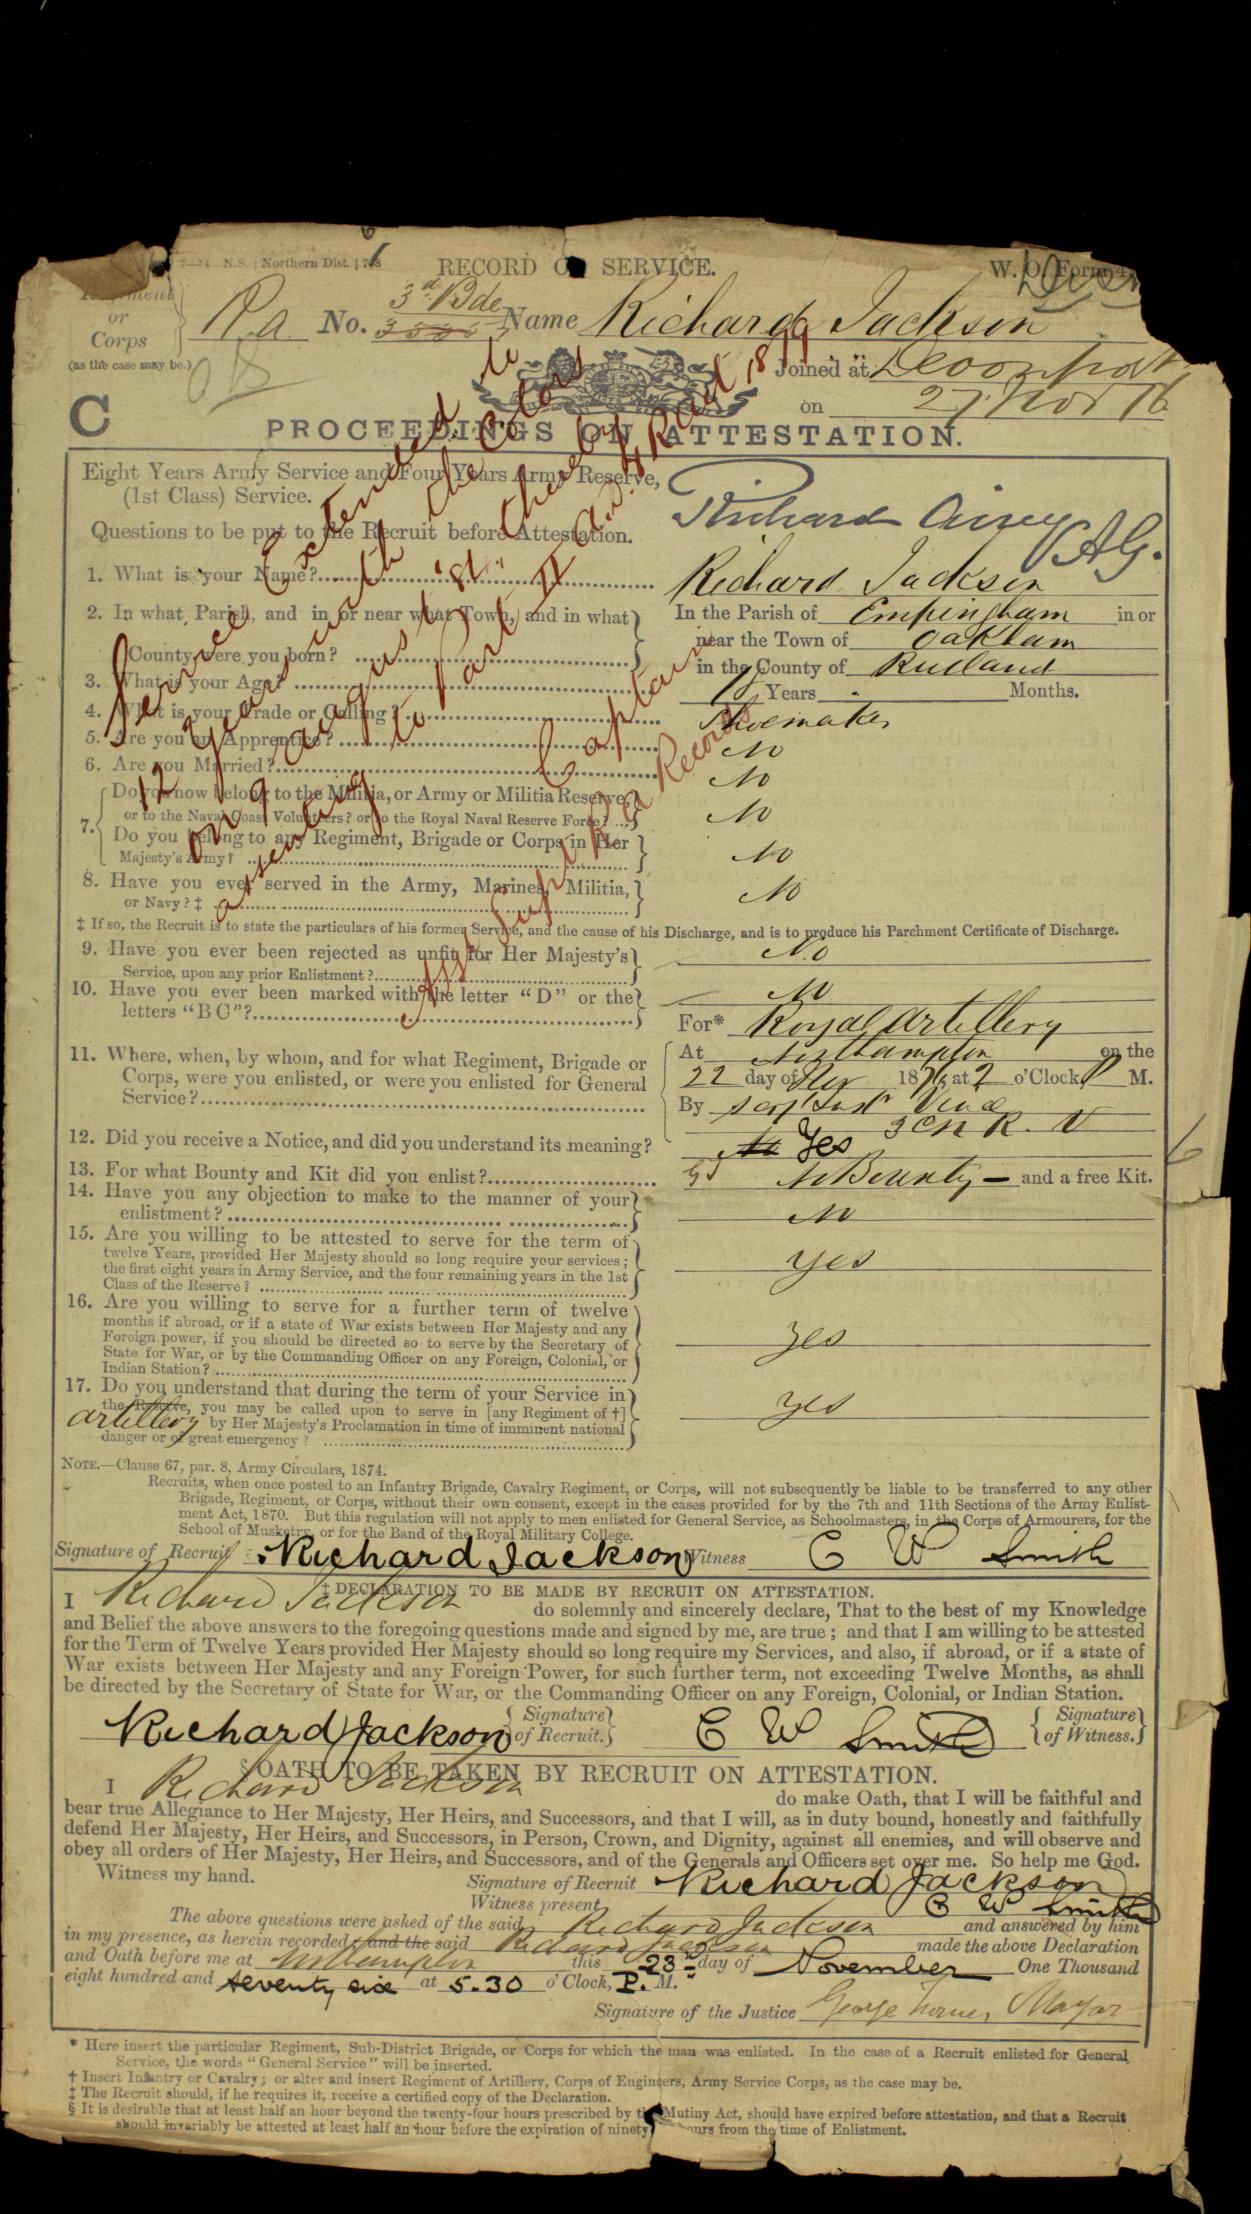 7—74 N.S. | Northern Dist. | 768
RECORD OF SERVICE.
W. O. Form 4
Regiment
or
Corps
(as the case may be.)
R.a. No. 3d. Bde Name Richard Jackson
Joined at Devonport
on 27 Nov 76
C
PROCEEDINGS ON ATTESTATION.
Eight Years Army Service and Four Years Army Reserve,
(1st Class) Service.
Richard Airey
A.G.
Questions to be put to the Recruit before Attestation.
1. What is your Name? Richard Jackson
2. In what Parish, and in or near what Town, and in what
County were you born?
In the Parish of Empingham in or
near the Town of Oakham
in the County of Rutland
3. What is your Age? 18 Years - Months.
4. What is your Trade or Calling? Shoemaker
5. Are you an Apprentice? No
6. Are you Married? No
7. Do you now belong to the Militia, or Army or Militia Reserve,
or to the Naval Coast Volunteers? or to the Royal Naval Reserve Force? No
Do you belong to any Regiment, Brigade or Corps in Her
Majesty's Army? No
8. Have you ever served in the Army, Marines, Militia,
or Navy? ‡ No
‡ If so, the Recruit is to state the particulars of his former Service, and the cause of his Discharge, and is to produce his Parchment Certificate of Discharge.
9. Have you ever been rejected as unfit for Her Majesty's
Service, upon any prior Enlistment? No
10. Have you ever been marked with the letter "D" or the
letters "BC"? No
For* Royal Artillery
11. Where, when, by whom, and for what Regiment, Brigade or
Corps, were you enlisted, or were you enlisted for General
Service?
At Northampton on the
22 day of Nov 1876, at 2 o'Clock P M.
By
12. Did you receive a Notice, and did you understand its meaning? No Yes
13. For what Bounty and Kit did you enlist? No Bounty — and a free Kit.
14. Have you any objection to make to the manner of your
enlistment? No
15. Are you willing to be attested to serve for the term of
twelve Years, provided Her Majesty should so long require your services;
the first eight years in Army Service, and the four remaining years in the 1st
Class of the Reserve? yes
16. Are you willing to serve for a further term of twelve
months if abroad, or if a state of War exists between Her Majesty and any
Foreign power, if you should be directed so to serve by the Secretary of
State for War, or by the Commanding Officer on any Foreign, Colonial, or
Indian Station? yes
17. Do you understand that during the term of your Service in
the Reserve, you may be called upon to serve in [any Regiment of †]
artillery by Her Majesty's Proclamation in time of imminent national
danger or of great emergency? yes
Service Extended to
12 years with the Colors
on 9 August '81, thereby
assenting to Part II A.D. & R. Act, 1879
Captain
Asst Supt R.A. Records
NOTE.—Clause 67, par. 8, Army Circulars, 1874.
Recruits, when once posted to an Infantry Brigade, Cavalry Regiment, or Corps, will not subsequently be liable to be transferred to any other
Brigade, Regiment, or Corps, without their own consent, except in the cases provided for by the 7th and 11th Sections of the Army Enlist-
ment Act, 1870. But this regulation will not apply to men enlisted for General Service, as Schoolmasters, in the Corps of Armourers, for the
School of Musketry, or for the Band of the Royal Military College.
Signature of Recruit Richard Jackson Witness C W Smith
‡ DECLARATION TO BE MADE BY RECRUIT ON ATTESTATION.
I Richard Jackson do solemnly and sincerely declare, That to the best of my Knowledge
and Belief the above answers to the foregoing questions made and signed by me, are true; and that I am willing to be attested
for the Term of Twelve Years provided Her Majesty should so long require my Services, and also, if abroad, or if a state of
War exists between Her Majesty and any Foreign Power, for such further term, not exceeding Twelve Months, as shall
be directed by the Secretary of State for War, or the Commanding Officer on any Foreign, Colonial, or Indian Station.
Richard Jackson { Signature of Recruit. } C W Smith { Signature of Witness. }
§ OATH TO BE TAKEN BY RECRUIT ON ATTESTATION.
I Richard Jackson do make Oath, that I will be faithful and
bear true Allegiance to Her Majesty, Her Heirs, and Successors, and that I will, as in duty bound, honestly and faithfully
defend Her Majesty, Her Heirs, and Successors, in Person, Crown, and Dignity, against all enemies, and will observe and
obey all orders of Her Majesty, Her Heirs, and Successors, and of the Generals and Officers set over me. So help me God.
Witness my hand. Signature of Recruit Richard Jackson
Witness present C W Smith
The above questions were asked of the said Richard Jackson and answered by him
in my presence, as herein recorded; and the said Richard Jackson made the above Declaration
and Oath before me at Northampton this 23rd day of November One Thousand
eight hundred and seventy six at 5.30 o'Clock, P. M.
Signature of the Justice George Turner Mayor
* Here insert the particular Regiment, Sub-District Brigade, or Corps for which the man was enlisted. In the case of a Recruit enlisted for General
Service, the words "General Service" will be inserted.
† Insert Infantry or Cavalry; or alter and insert Regiment of Artillery, Corps of Engineers, Army Service Corps, as the case may be.
‡ The Recruit should, if he requires it, receive a certified copy of the Declaration.
§ It is desirable that at least half an hour beyond the twenty-four hours prescribed by the Mutiny Act, should have expired before attestation, and that a Recruit
should invariably be attested at least half an hour before the expiration of ninety hours from the time of Enlistment.